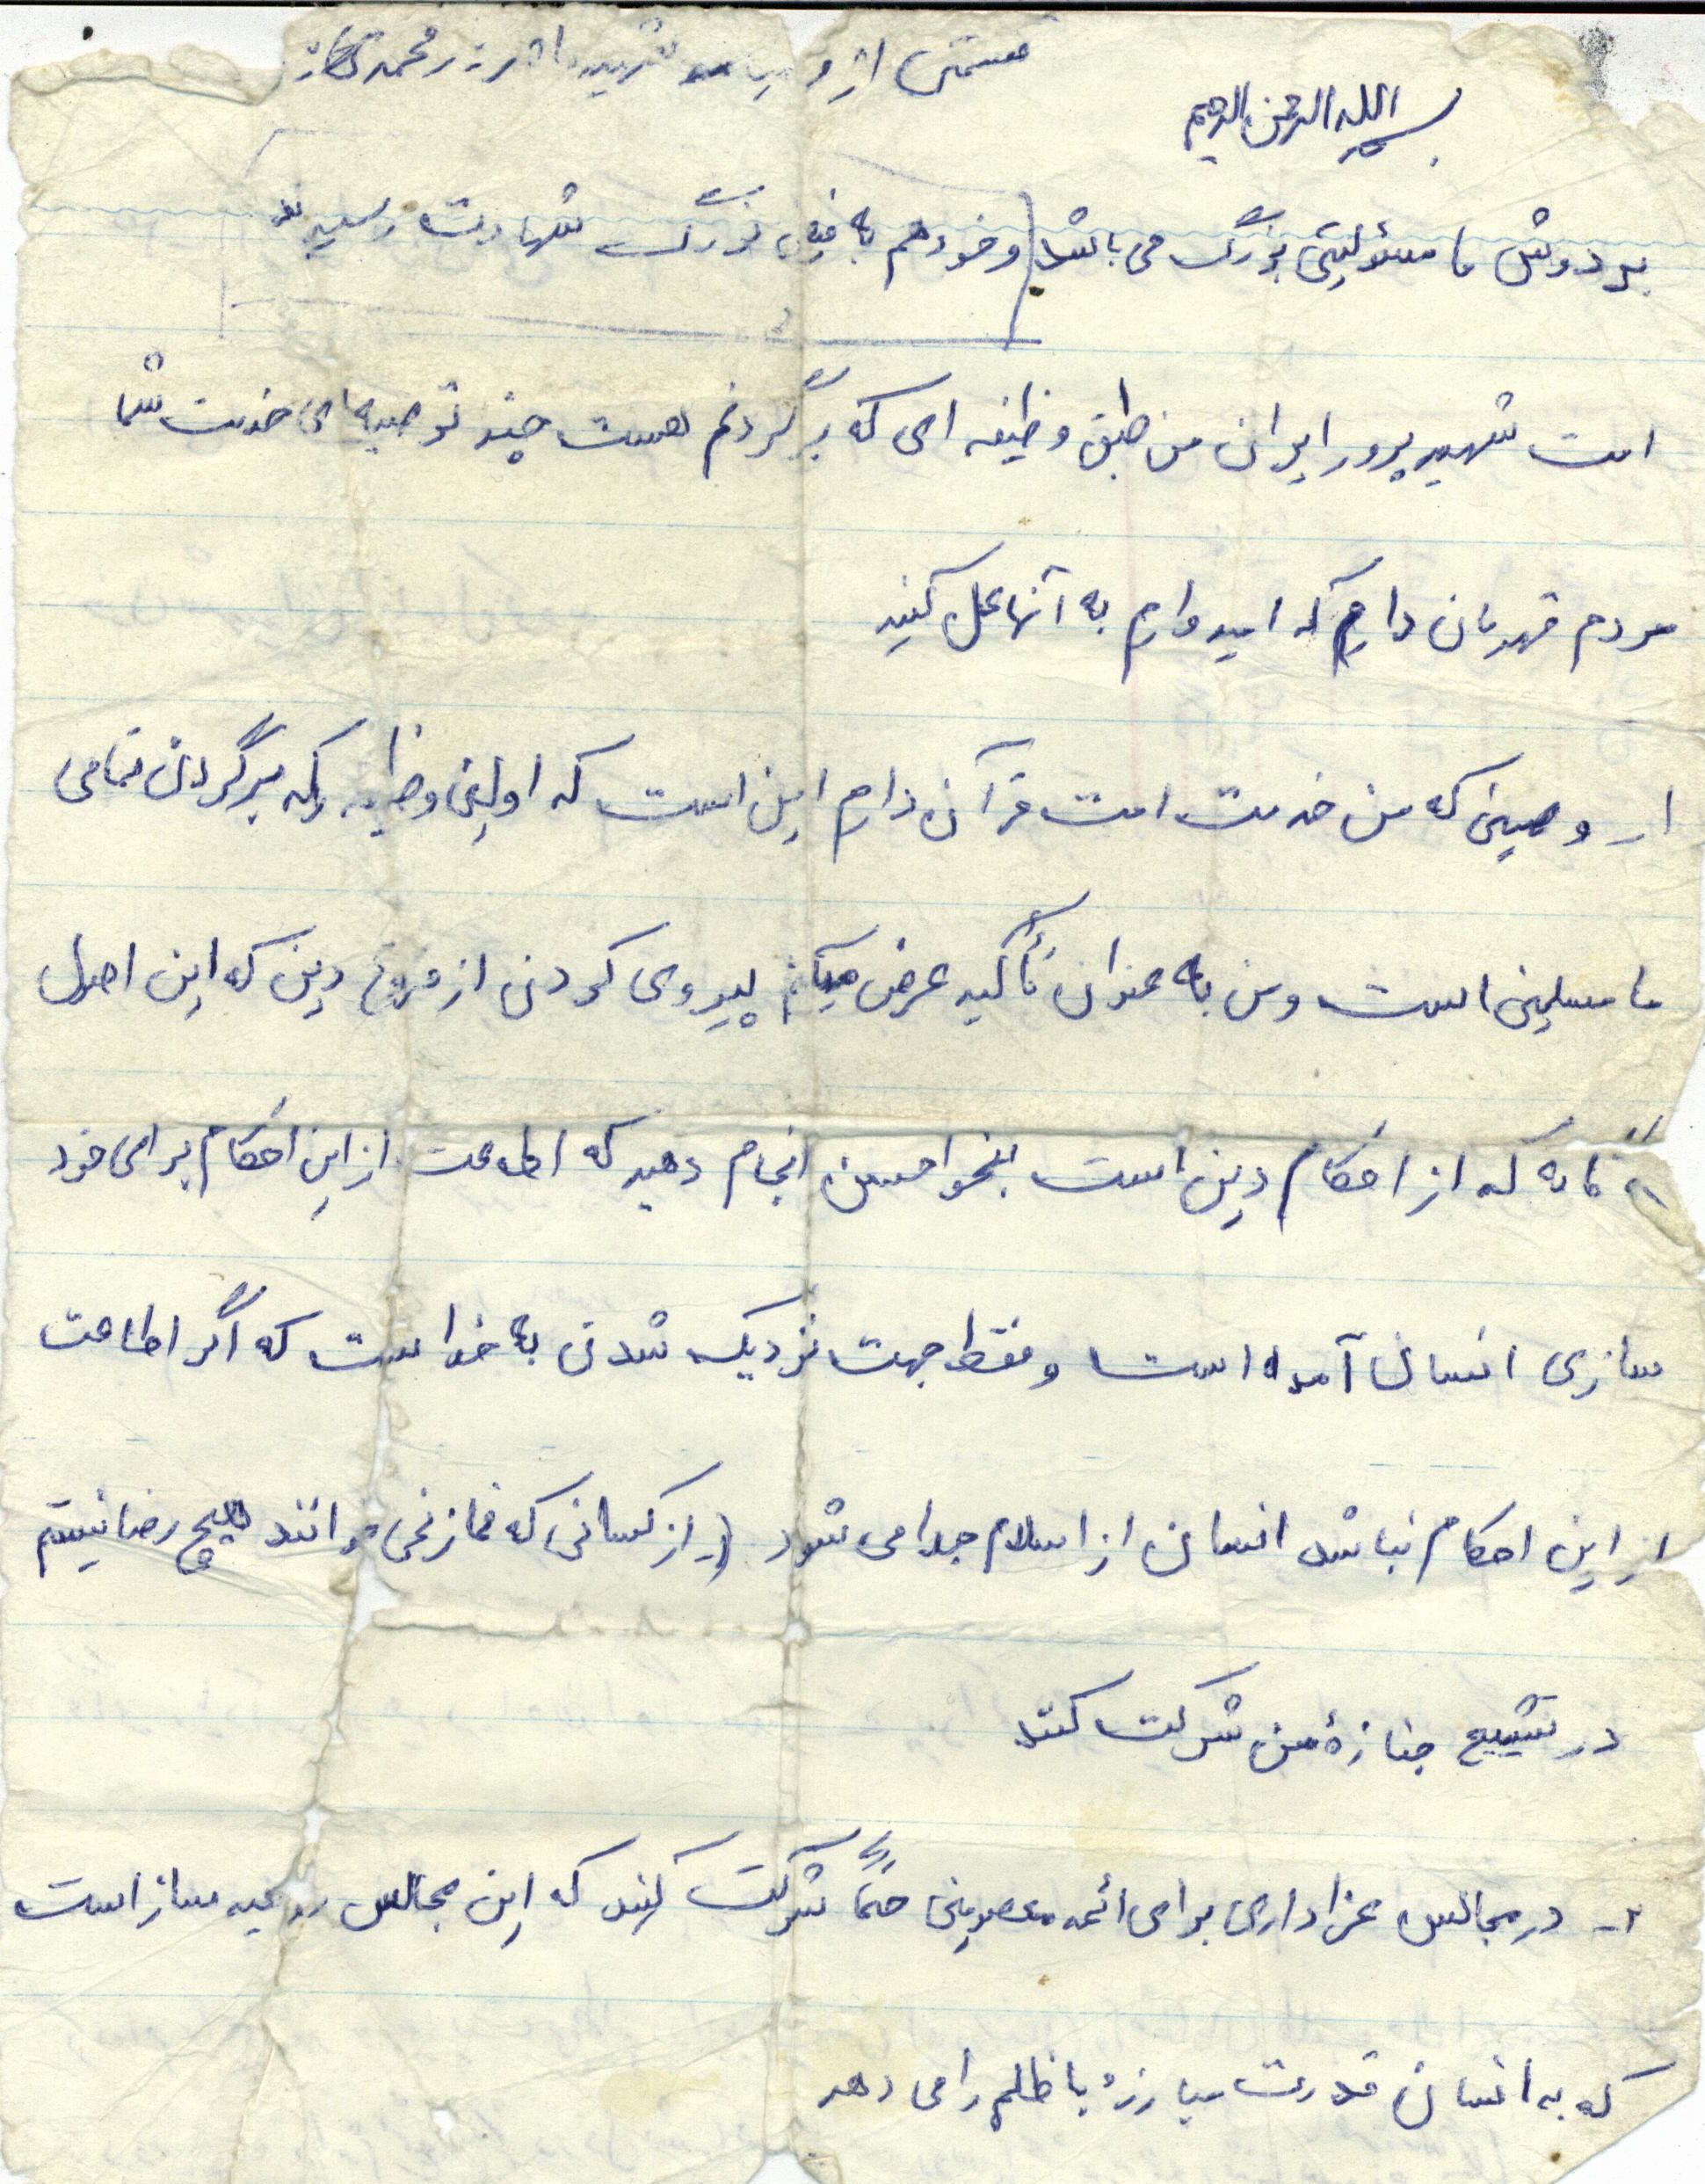 قسمتی از و
بسم الله الرحمن الرحیم
بر دوش ما مسئولیتی بزرگ می باشد و خود هم به فیض بزرگ شهادت رسیدند
امت شهیدپرور ایران من طبق وظیفه ای که بر گردنم هست چند توصیه ای خدمت شما
مردم قهرمان دارم که امیدوارم به آنها عمل کنید
۱ـ وصیتی که من خدمت امت قرآن دارم این است که اولین وظیفه که بر گردن تمامی
ما مسلمین است و من به عنوان تأکید عرض میکنم پیروی کردن از فروع دین که این اصول
که از احکام دین است بنحو احسن انجام دهید که اطاعت از این احکام برای خود
سازی انسان آمده است و فقط جهت نزدیک شدن به خداست که اگر اطاعت
از این احکام نباشد انسان از اسلام جدا می شود (از کسانی که نماز نمی خوانند هیچ رضا نیستم
در تشییع جنازهٔ من شرکت کنند
۲ـ در مجالس عزاداری برای ائمه معصومین حتماً شرکت کنید که این مجالس روحیه ساز است
که به انسان قدرت مبارزهٔ با ظلم را می دهد